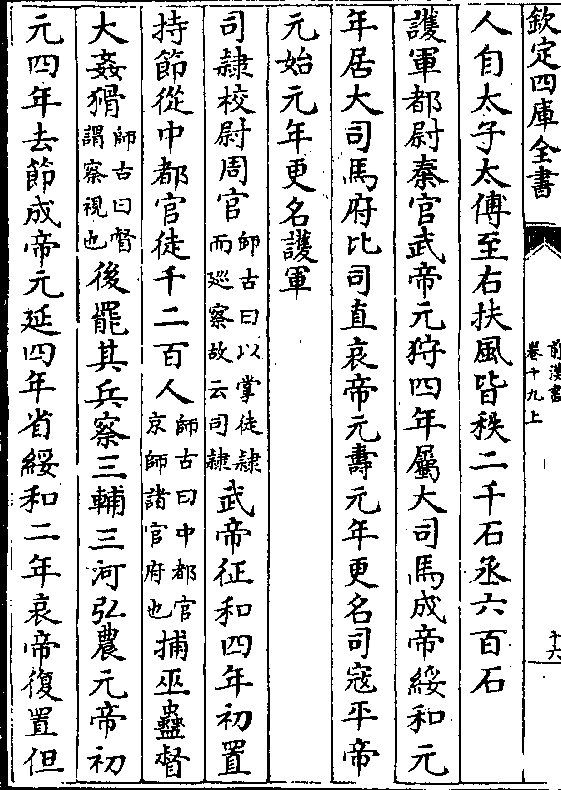 欽定四庫全書
前漢書
卷十九上
十六
人自太子太傅至右扶風皆秩二千石丞六百石
護軍都尉秦官武帝元狩四年屬大司馬成帝綏和元
年居大司馬府比司直哀帝元壽元年更名司寇平帝
元始元年更名護軍
司隸校尉周官師古曰以掌徒隸而廵察故云司隸武帝征和四年初置
持節從中都官徒千二百人師古曰中都官京師諸官府也捕巫蠱督
大姦猾師古曰督謂察視也後罷其兵察三輔三河弘農元帝初
元四年去節成帝元延四年省綏和二年哀帝復置但